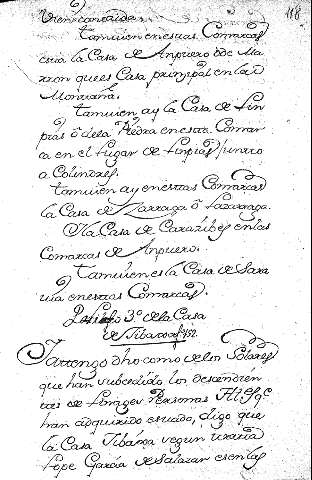 118
vien cansaida.
tamvien en estas Comarcas
esta la Casa de Ampuero ô de Ma
rron que es Casa principal en la
Montaña.
tamvien ay la Casa de Lim
pias ô de la Piedra en esta Comar
ca en el Lugar de Limpias junto
a Colindres.
tamvien ay en estas Comarcas
la Casa de Zarraga ô Lazarraga.
Y la Casa de en las
Comarcas de Ampuero.
Y tamvien esta la Casa de Sara
via en estas Comarcas.
3º de la Casa
de
Ya tengo dho como de los Solares
que han subcedido los descendien
tes de Linages Personas
han adquirido estado, digo que
la Casa segun
Lope García de Salazar es en las